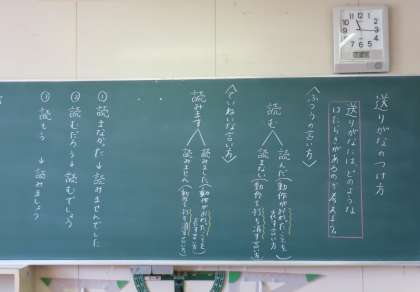 送りがなのつけ方
送りがなには、どのような
はたらきがあるのか考えよう。
〈ふつうの言い方〉
読む
読んだ(動作がおわったことを
表す言い方
読まない(動作を打ち消す言い方
〈ていねいな言い方〉
読みます
読みました(動作がおわったことを
表す言い方
読みません(動作を打ち消す言い方
① 読まなかった→読みませんでした
② 読むだろう→読むでしょう
③ 読もう → 読みましょう